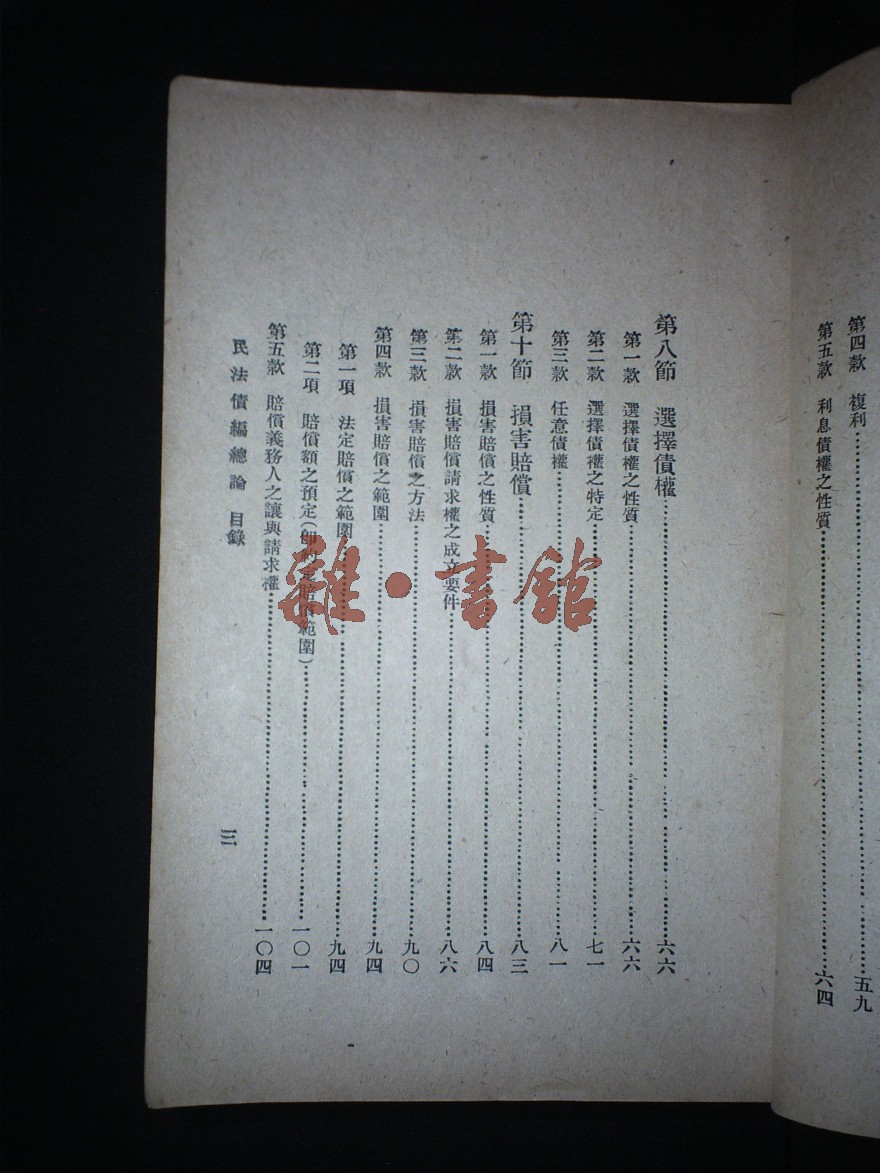 第四款 複利……五九
第五款 利息債權之性質……六四
第八節 選擇債權……六六
第一款 選擇債權之性質……六六
第二款 選擇債權之特定……七一
第三款 任意債權……八一
第十節 損害賠償……八三
第一款 損害賠償之性質……八四
第二款 損害賠償請求權之成立要件……八六
第三款 損害賠償之方法……九〇
第四款 損害賠償之範圍……九四
第一項 法定賠償之範圍……九四
第二項 賠償額之預定(卽約定賠償範圍)……一〇一
第五款 賠償義務人之讓與請求權……一〇四
民法債編總論 目錄
三
雜·書館